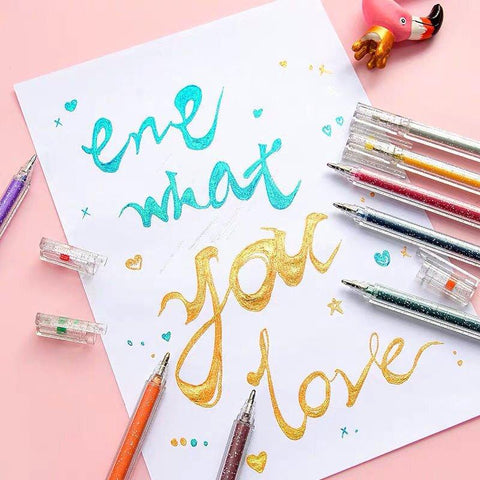 ene
what
you
love